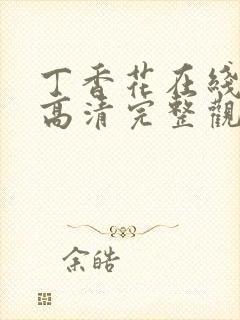 丁香花在綫
高清完整觀
余皓